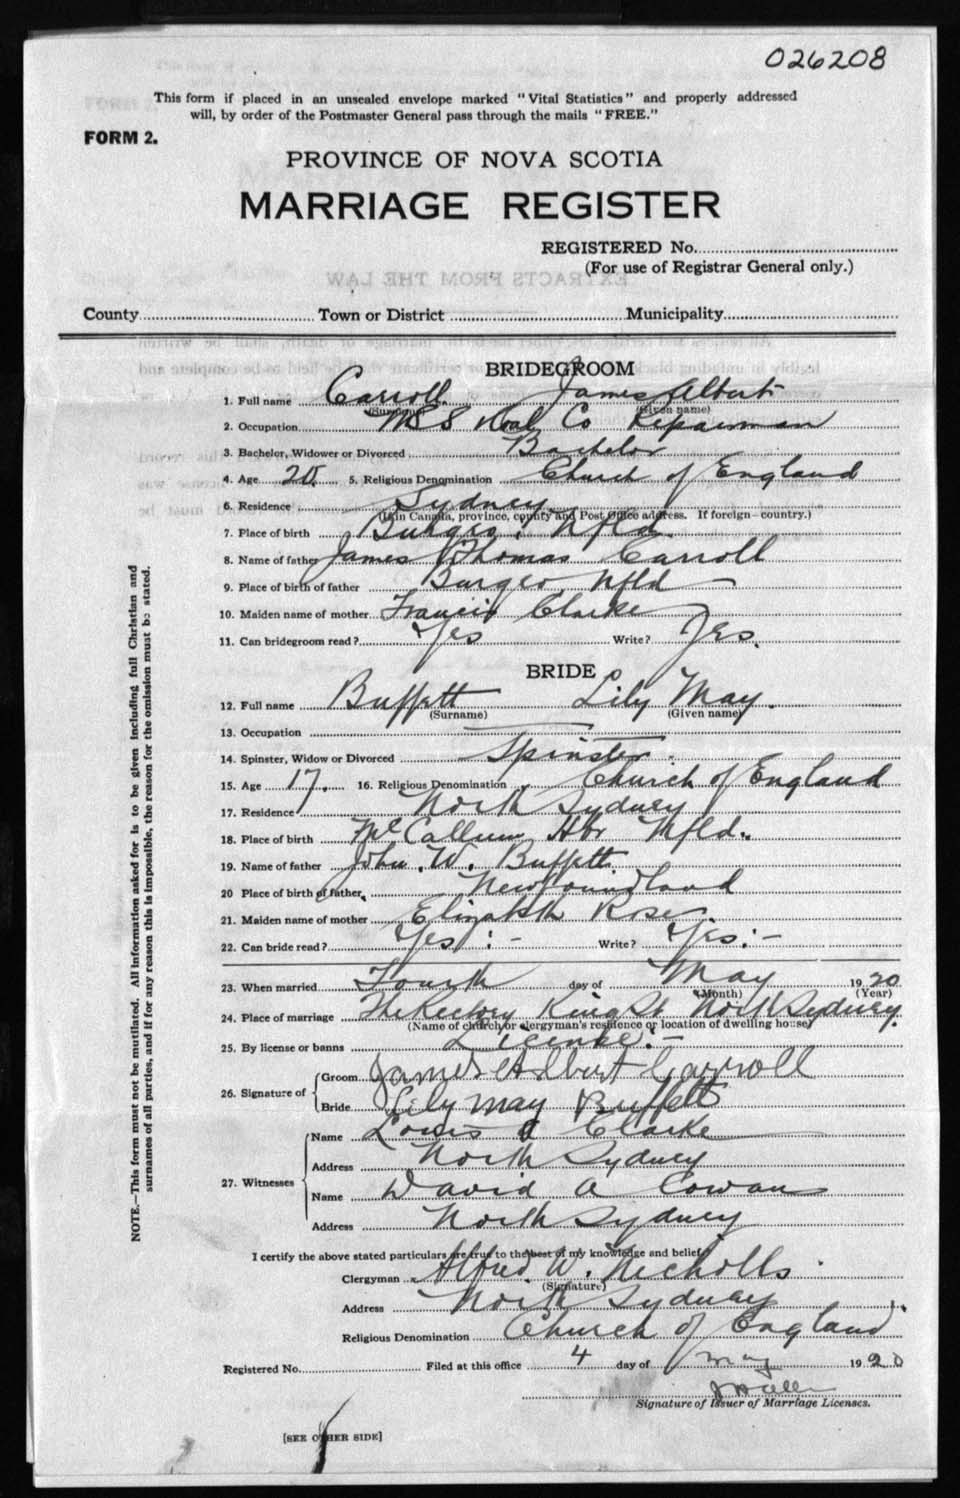 026208
This form if placed in an unsealed envelope marked "Vital Statistics" and properly addressed
will, by order of the Postmaster General pass through the mails "FREE."
FORM 2.
PROVINCE OF NOVA SCOTIA
MARRIAGE REGISTER
REGISTERED No.
(For use of Registrar General only.)
EXTRACTS FROM THE LAW
County Town or District Municipality
BRIDEGROOM
1. Full name Carroll James Albert
(Surname) (Given name)
2. Occupation Co Repairman
3. Bachelor, Widower or Divorced Bachelor
4. Age 20. 5. Religious Denomination Church of England
6. Residence Sydney
(If in Canada, province, county and Post Office address. If foreign—country.)
7. Place of birth Burgeo, Nfld.
8. Name of father James Thomas Carroll
9. Place of birth of father Burgeo Nfld
10. Maiden name of mother Francis Clarke
11. Can bridegroom read? Yes Write? Yes.
BRIDE
12. Full name Buffett Lily May.
(Surname) (Given name)
13. Occupation
14. Spinster, Widow or Divorced Spinster
15. Age 17. 16. Religious Denomination Church of England
17. Residence North Sydney
18. Place of birth McCallum Hbr Nfld.
19. Name of father John. W. Buffett
20 Place of birth of father Newfoundland
21. Maiden name of mother Elizabeth Rose.
22. Can bride read? Yes:- Write? Yes:-
23. When married Fourth day of May 1920
(Month) (Year)
24. Place of marriage The Rectory King St North Sydney.
(Name of church or clergyman's residence or location of dwelling house)
25. By license or banns License:-
26. Signature of Groom James Albert Carroll
Bride Lily May Buffett
27. Witnesses Name Louis J Clarke
Address North Sydney
Name David A Cowan
Address North Sydney
I certify the above stated particulars are true to the best of my knowledge and belief
Clergyman Alfred W. Nicholls
(Signature)
Address North Sydney
Religious Denomination Church of England
Registered No. Filed at this office 4 day of May 1920
Signature of Issuer of Marriage Licenses.
[SEE OTHER SIDE]
NOTE.—This form must not be mutilated. All information asked for is to be given including full Christian and
surnames of all parties, and if for any reason this is impossible, the reason for the omission must be stated.